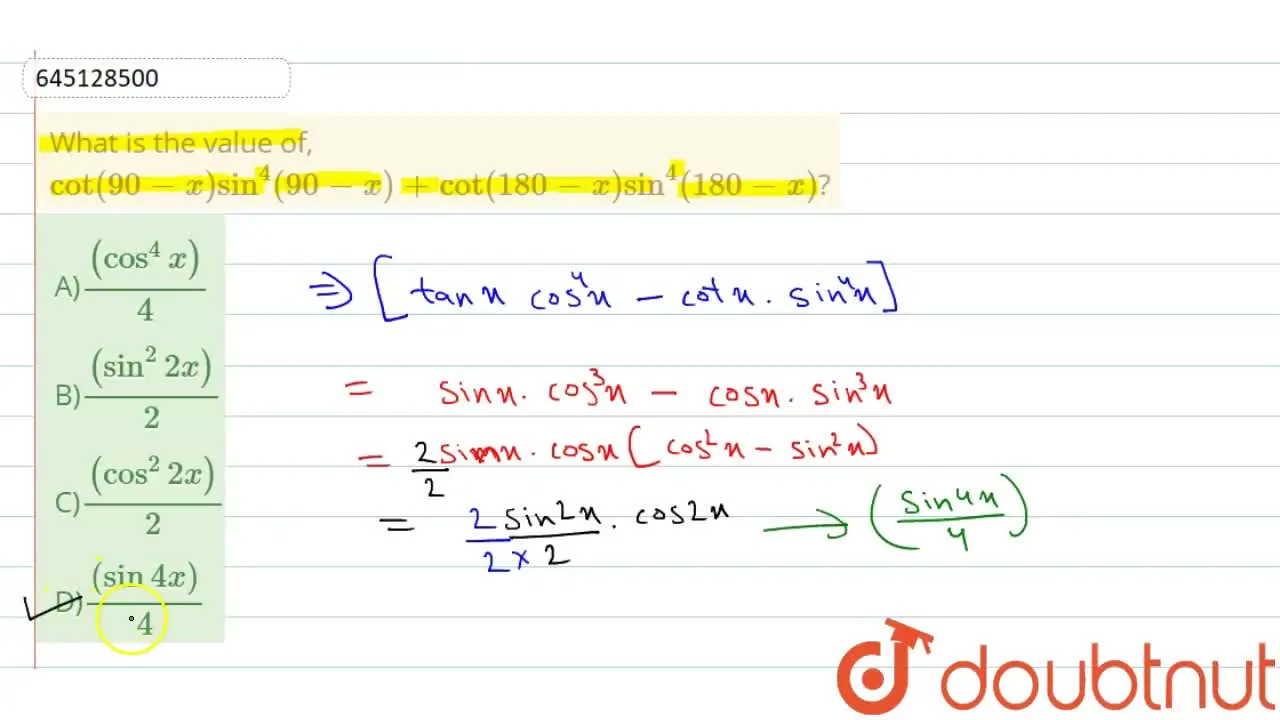 645128500
What is the value of,
cot(90 − x)sin⁴(90 − x) + cot(180 − x)sin⁴(180 − x)?
A) (cos⁴ x)/4
B) (sin² 2x)/2
C) (cos² 2x)/2
D) (sin 4x)/4
⇒ [tanx cos⁴x − cotx . sin⁴x]
= sinx. cos³x − cosx. sin³x
= 2/2 sinx . cosx (cos²x − sin²x)
= 2 sin2x/2×2 . cos2x → (sin4x/4)
doubtnut